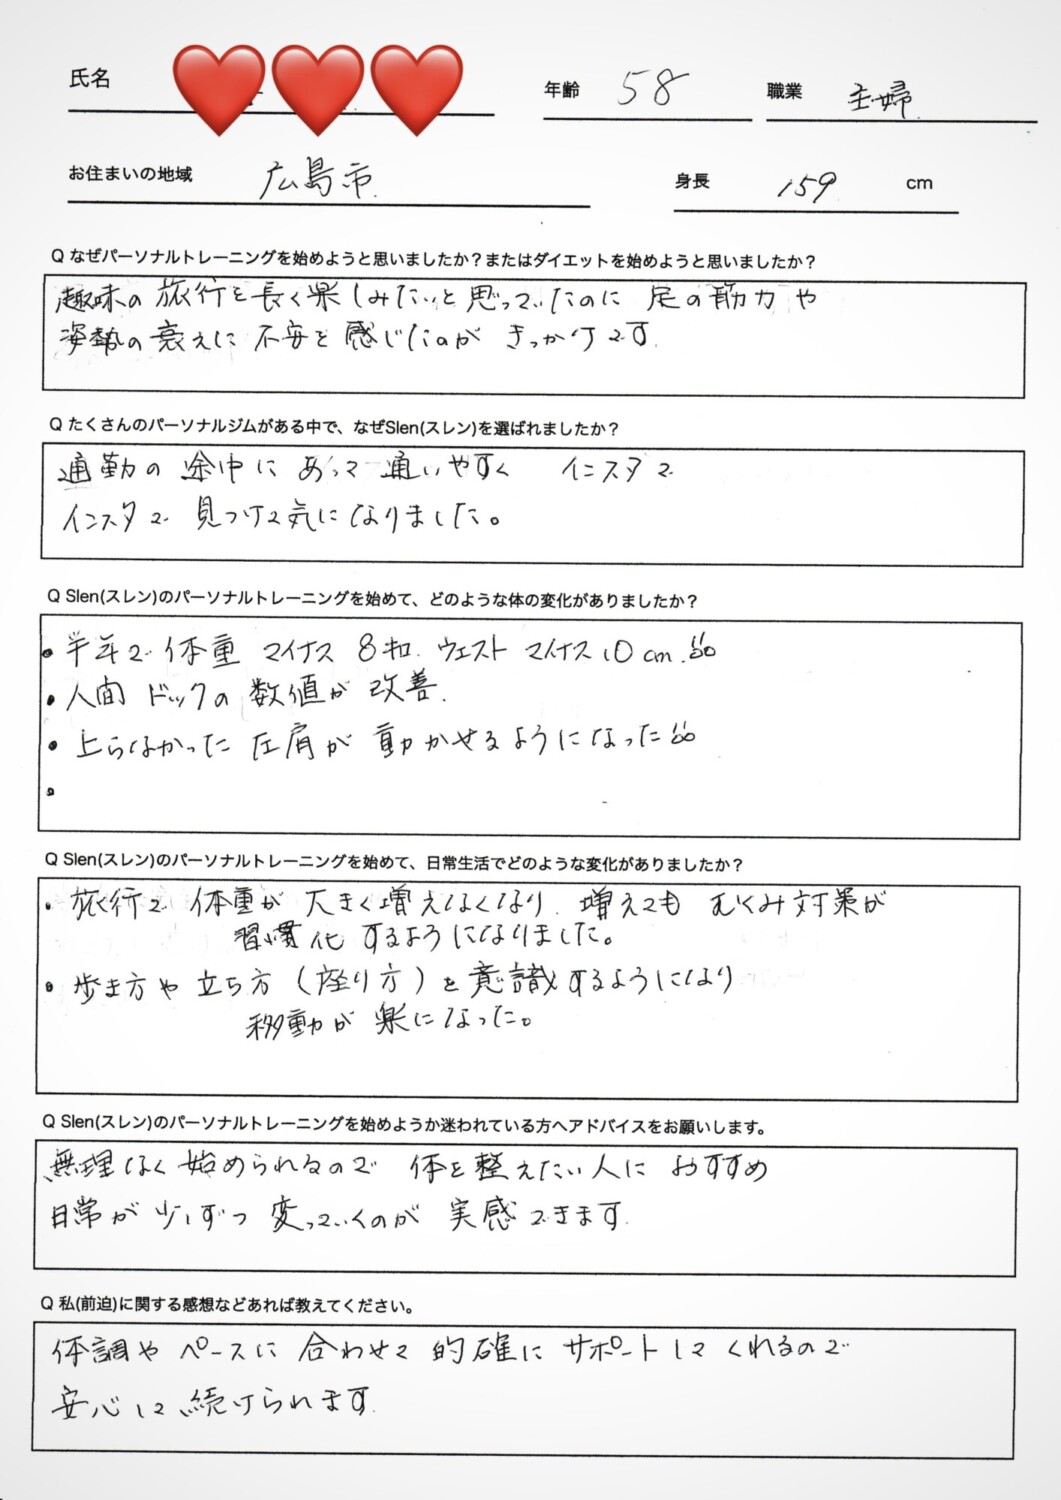 氏名
年齢 58
職業 主婦
お住まいの地域 広島市
身長 159 cm
Q なぜパーソナルトレーニングを始めようと思いましたか？またはダイエットを始めようと思いましたか？
趣味の旅行を長く楽しみたいと思っていたのに 足の筋力や
姿勢の衰えに不安を感じたのが きっかけです
Q たくさんのパーソナルジムがある中で、なぜSlen(スレン)を選ばれましたか？
通勤の途中にあって通いやすく インスタで
インスタで 見つけて気になりました。
Q Slen(スレン)のパーソナルトレーニングを始めて、どのような体の変化がありましたか？
・半年で体重 マイナス 8キロ ウエスト マイナス 10cm
・人間ドックの数値が改善.
・上らなかった左肩が動かせるようになった
・
Q Slen(スレン)のパーソナルトレーニングを始めて、日常生活でどのような変化がありましたか？
・旅行で体重が大きく増えなくなり、増えてもむくみ対策が
習慣化するようになりました。
・歩き方や立ち方（座り方）を意識するようになり
移動が楽になった。
Q Slen(スレン)のパーソナルトレーニングを始めようか迷われている方へアドバイスをお願いします。
無理なく始められるので 体を整えたい人に おすすめ
日常が少しずつ変っていくのが 実感できます
Q 私(前迫)に関する感想などあれば教えてください。
体調やペースに合わせて的確にサポートしてくれるので
安心して続けられます